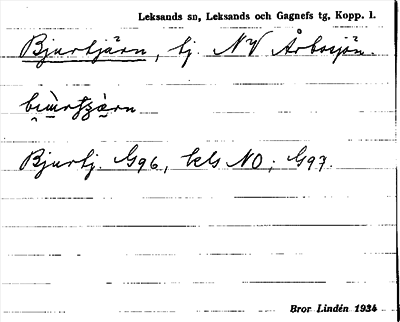 Leksands sn, Leksands och Gagnefs tg, Kopp. l.
Bjurtjärn, tj. NV Årbosjön.
Bjurtj. G96, kls NO; G97.
Bror Lindén 1934